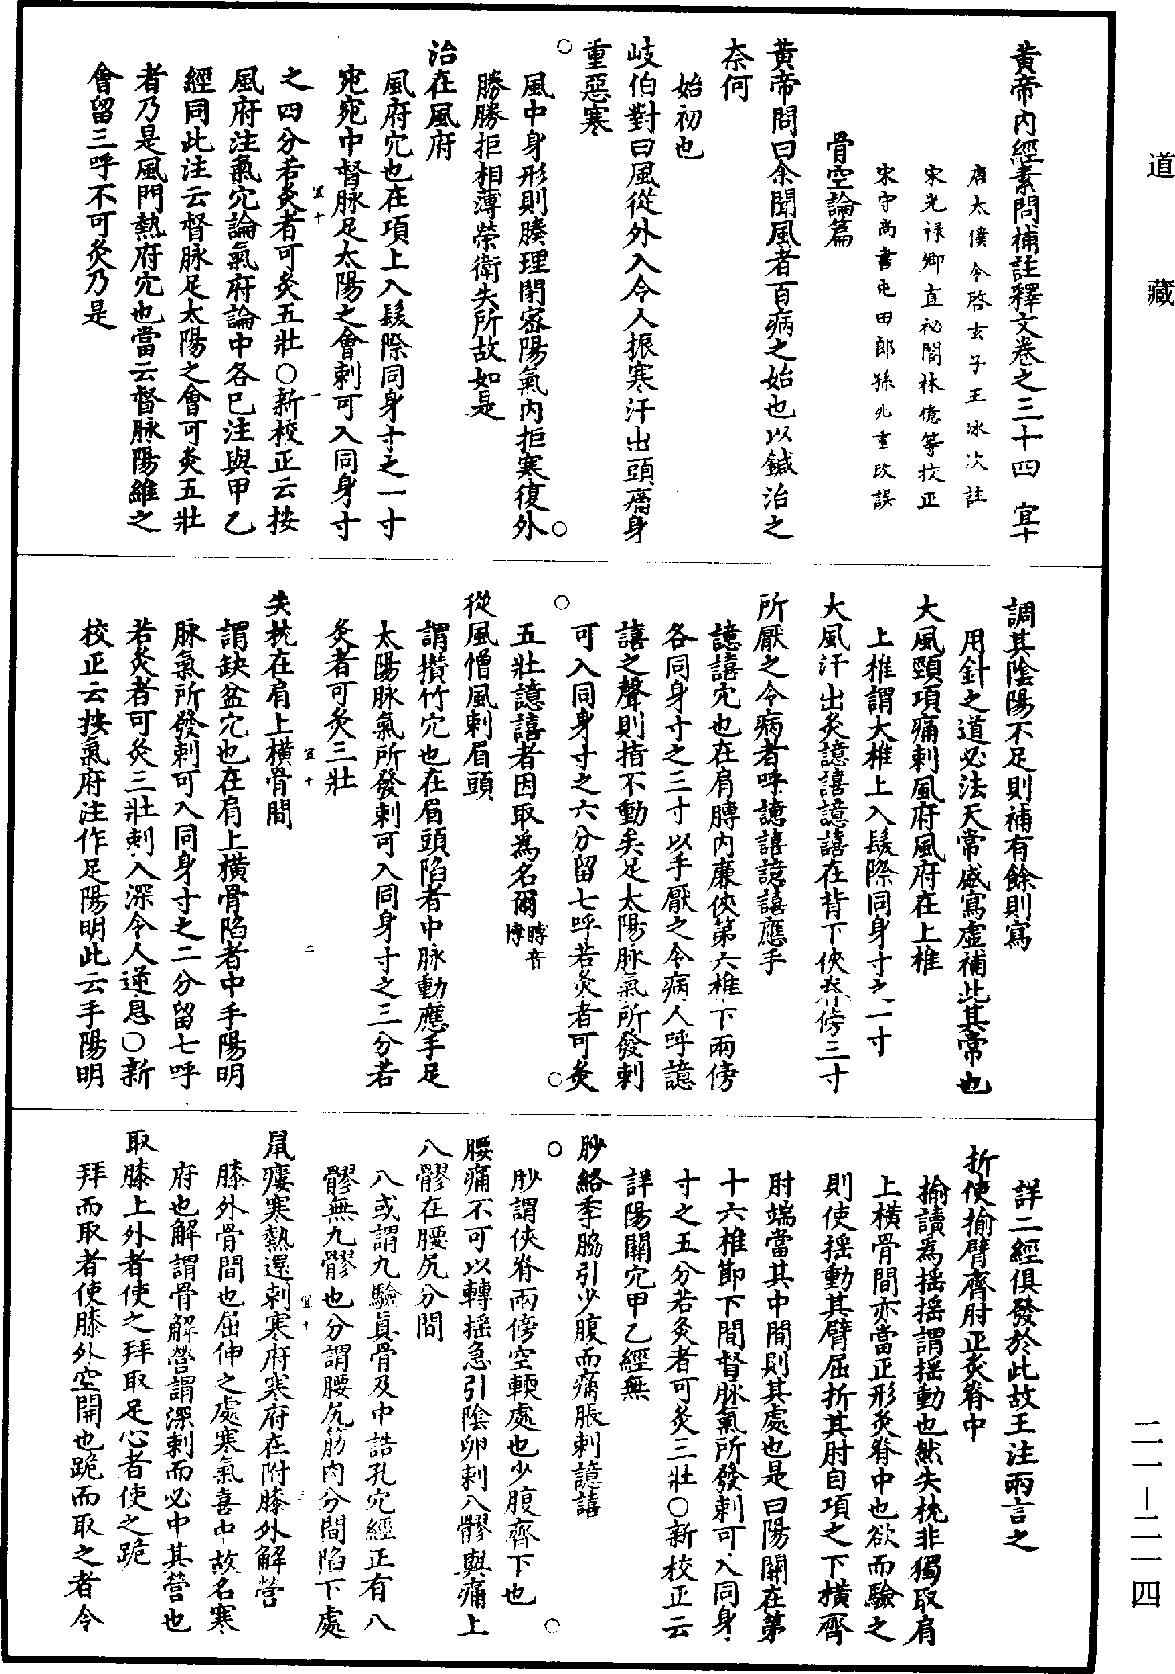 道藏
黃帝內經素問補註釋文卷之三十四 宜十
唐太僕令啓玄子王冰次註
宋光祿卿直祕閣林億等校正
宋守尚書屯田郎孫兆重改誤
骨空論篇
黃帝問曰余聞風者百病之始也以鍼治之
奈何
始初也
岐伯對曰風從外入令人振寒汗出頭痛身
重惡寒
風中身形則腠理閉密陽氣內拒寒復外
勝勝拒相薄榮衛失所故如是
治在風府
風府穴也在項上入髮際同身寸之一寸
宛宛中督脉足太陽之會刺可入同身寸
宜十 一
之四分若灸者可灸五壯○新校正云按
風府注氣穴論氣府論中各已注與甲乙
經同此注云督脉足太陽之會可灸五壯
者乃是風門熱府穴也當云督脉陽維之
會留三呼不可灸乃是
調其陰陽不足則補有餘則寫
用針之道必法天常盛寫虛補此其常也
大風頸項痛刺風府風府在上椎
上椎謂大椎上入髮際同身寸之一寸
大風汗出灸譩譆譩譆在背下俠脊傍三寸
所厭之令病者呼譩譆譩譆應手
譩譆穴也在肩髆內廉俠第六椎下兩傍
各同身寸之三寸以手厭之令病人呼譩
譆之聲則指不動矣足太陽脉氣所發刺
可入同身寸之六分留七呼若灸者可灸
五壯譩譆者因取爲名爾 髆音博
從風憎風刺眉頭
謂攢竹穴也在眉頭陷者中脉動應手足
太陽脉氣所發刺可入同身寸之三分若
灸者可灸三壯
宜十 二
失枕在肩上橫骨間
謂缺盆穴也在肩上橫骨陷者中手陽明
脉氣所發刺可入同身寸之二分留七呼
若灸者可灸三壯刺入深令人逆息○新
校正云按氣府注作足陽明此云手陽明
詳二經俱發於此故王注兩言之
折使揄臂齊肘正灸脊中
揄讀爲搖搖謂搖動也然失枕非獨取肩
上橫骨間亦當正形灸脊中也欲而驗之
則使搖動其臂屈折其肘自項之下橫齊
肘端當其中間則其處也是曰陽關在第
十六椎節下間督脉氣所發刺可入同身
寸之五分若灸者可灸三壯○新校正云
詳陽關穴甲乙經無
䏚絡季脇引少腹而痛脹刺譩譆
䏚謂俠脊兩傍空軟處也少腹齊下也
腰痛不可以轉搖急引陰卵刺八髎與痛上
八髎在腰尻分間
八或謂九驗真骨及中誥孔穴經正有八
髎無九髎也分謂腰尻筋肉分間陷下處
宜十
鼠瘻寒熱還刺寒府寒府在附膝外解營
膝外骨間也屈伸之處寒氣喜中故名寒
府也解謂骨解營謂深刺而必中其營也
取膝上外者使之拜取足心者使之跪
拜而取者使膝外空開也跪而取之者令
二一—二一四